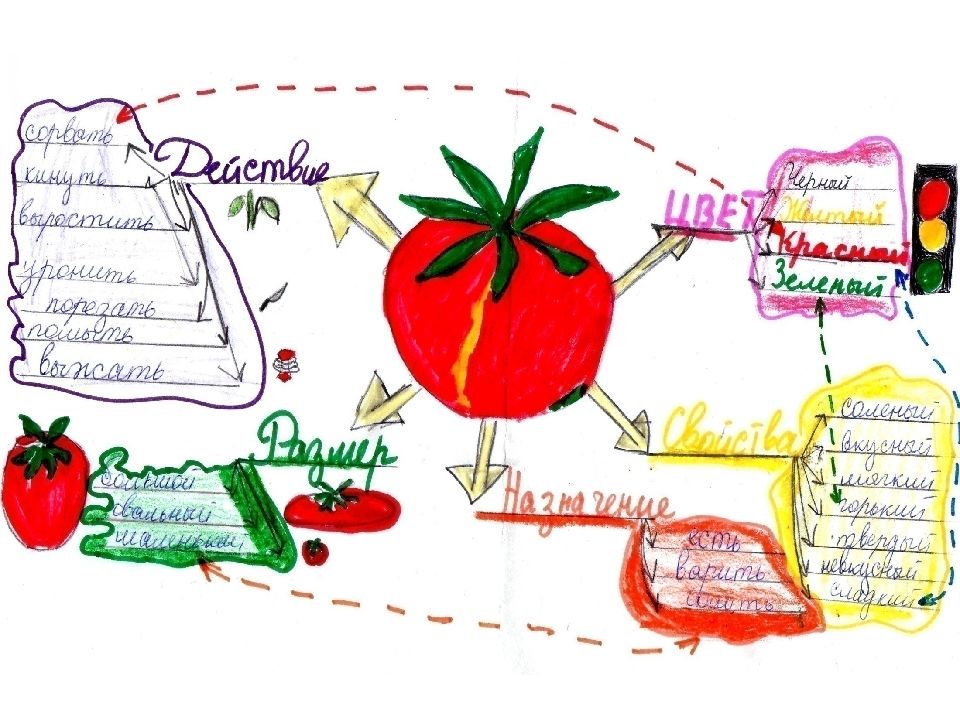 Действие
сорвать
кинуть
выростить
уронить
порезать
помыть
выжать
ЦВЕТ
Черный
Жёлтый
Красный
Зеленый
Размер
большой
овальный
маленький
Назначение
есть
варить
Свойства
соленый
вкусный
мягкий
горький
твердый
невкусный
сладкий